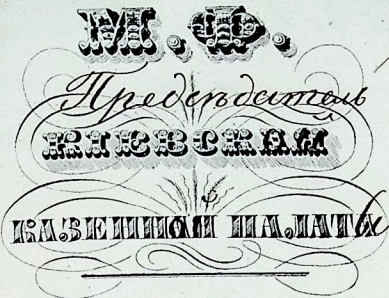 М. Ф.
Предсѣдатель
КІЕВСКОЙ
КАЗЕННОЙ ПАЛАТЫ